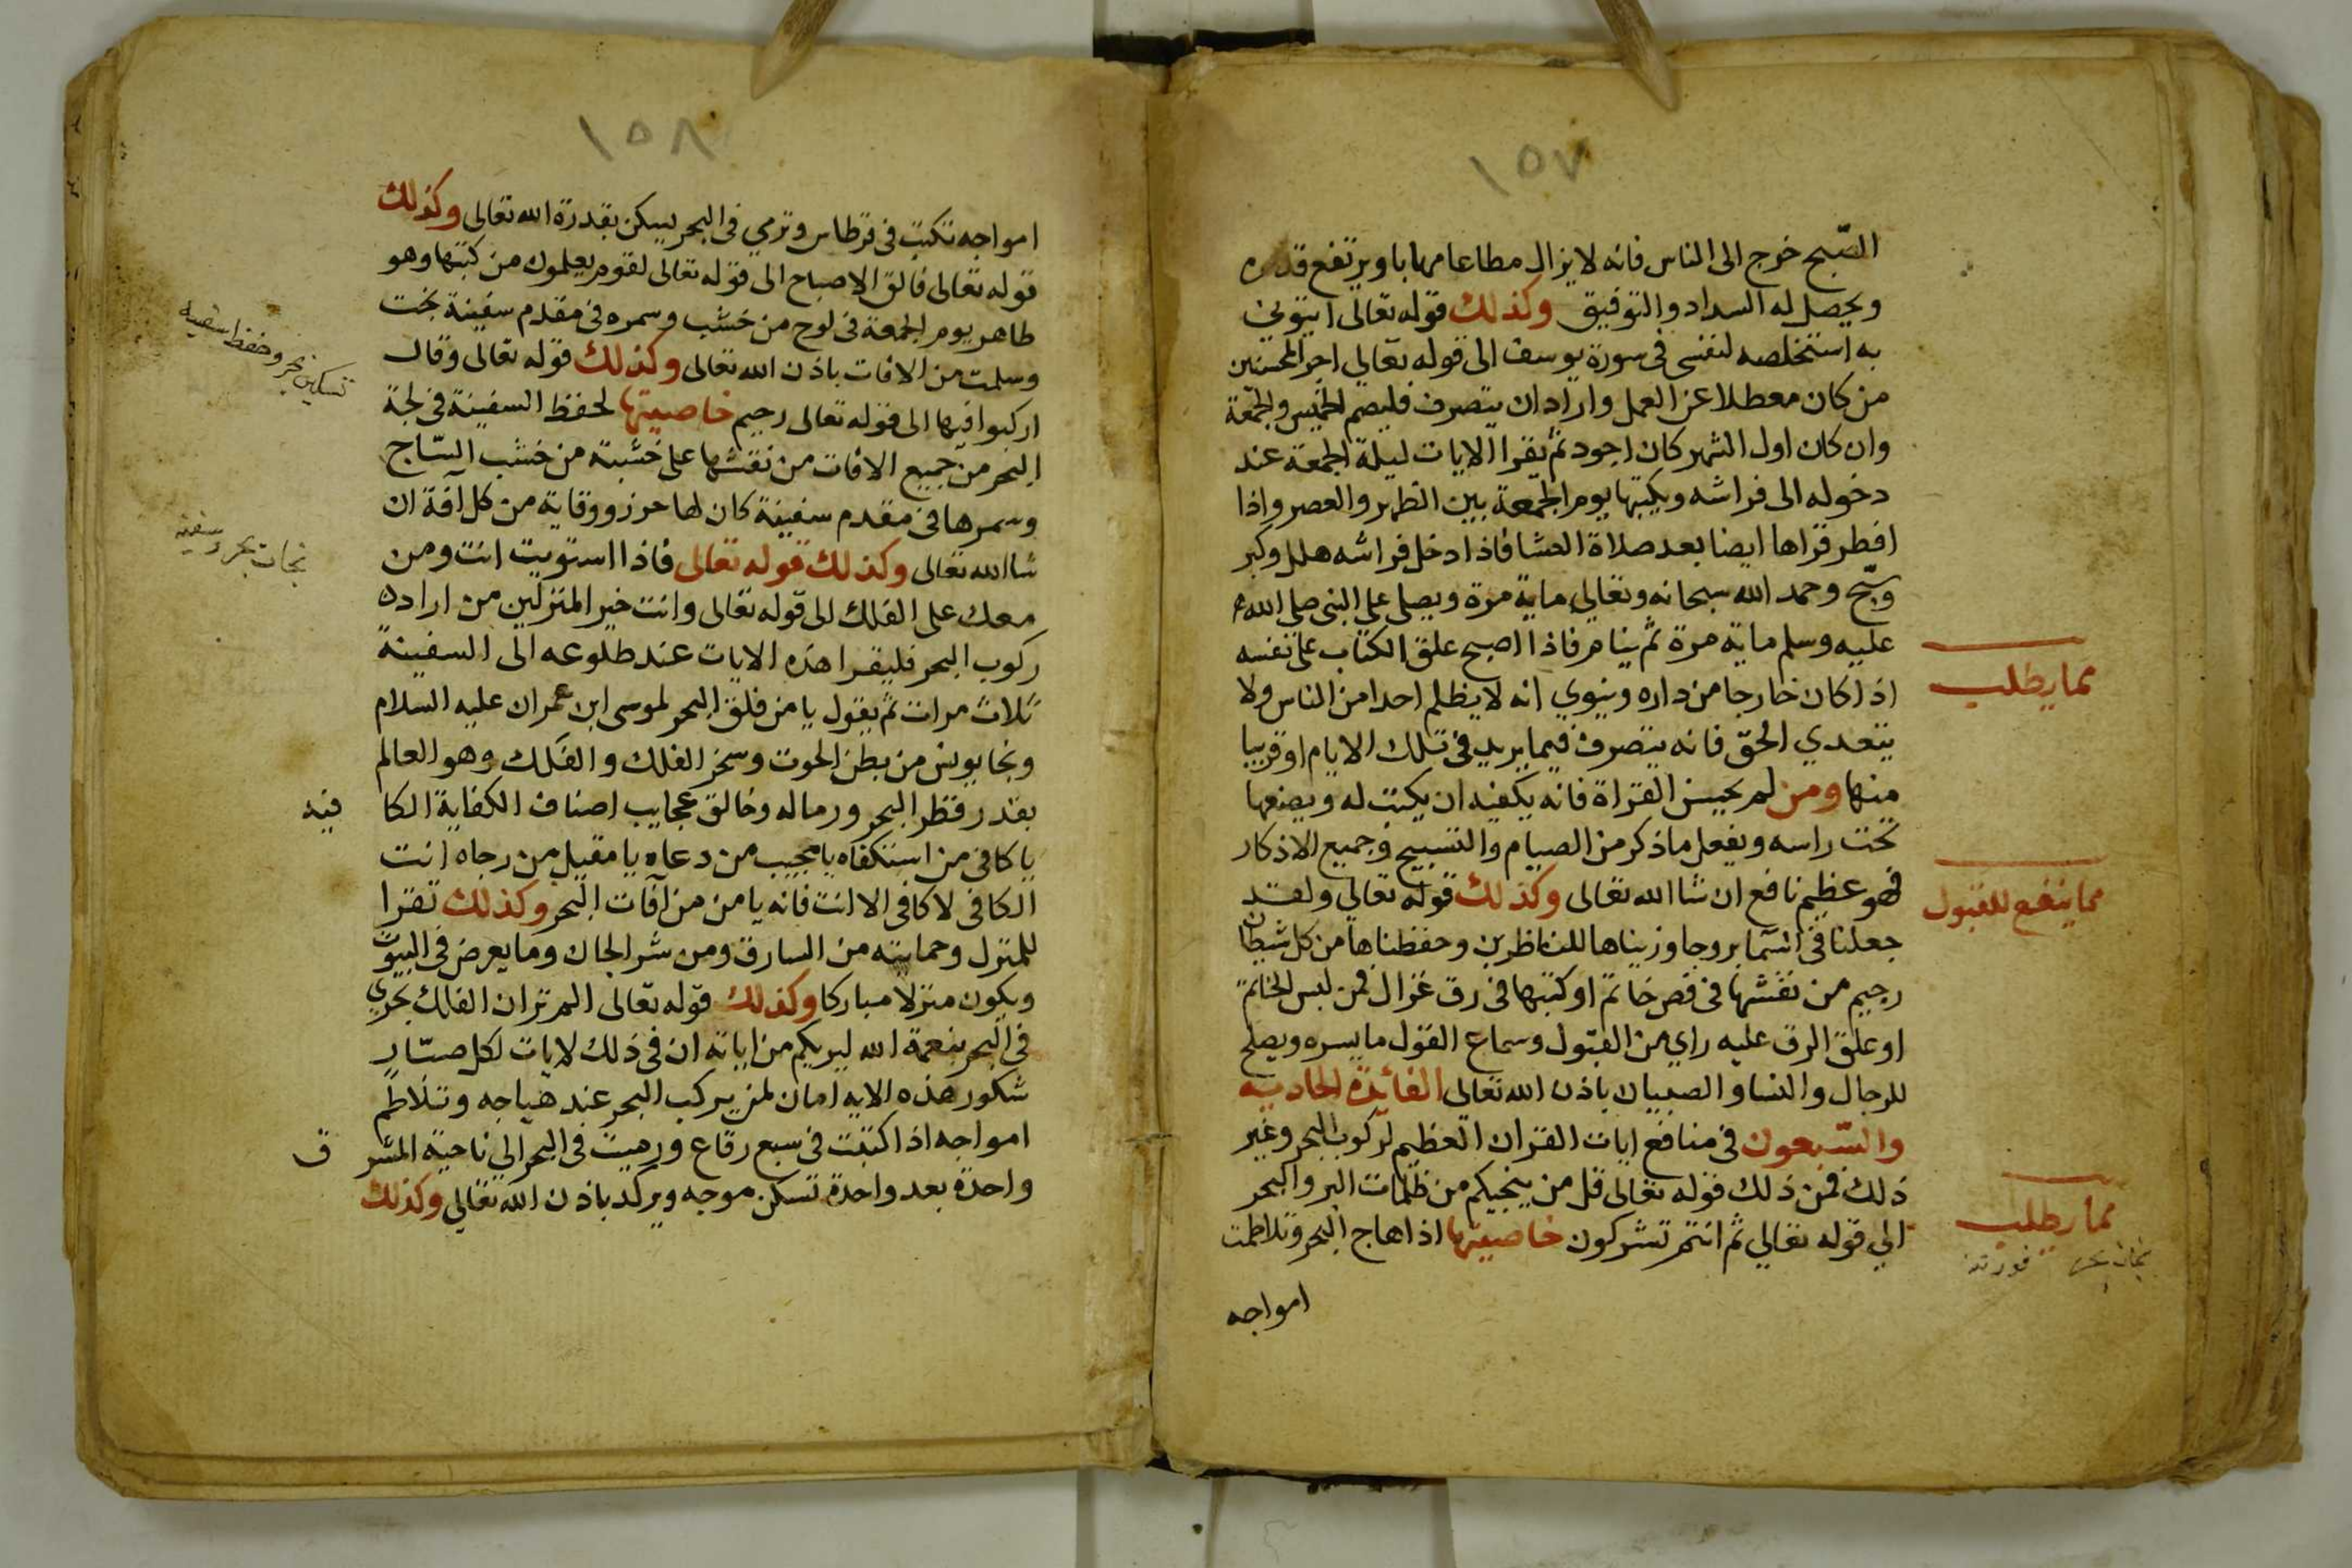 ١٥٧
الصّبح خرج الى الناس فانه لا يزال مطاعا مهابا ويرتفع قدره
ويحصل له السداد والتوفيق وكذلك قوله تعالى ايتوني
به استخلصه لنفسي في سورة يوسف الى قوله تعالى اجر المحسنين
من كان معطلا عن العمل واراد ان يتصرف فليصم الخميس والجمعة
وان كان اول الشهر كان اجود ثم يقرا الايات ليلة الجمعة عند
دخوله الى فراشه ويكتبها يوم الجمعة بين الظهر والعصر واذا
افطر قراها ايضا بعد صلاة العشا فاذا دخل فراشه هلل وكبر
وسبّح وحمد الله سبحانه وتعالى ماية مرة ويصلي على النبي صلى الله
عليه وسلم ماية مرة ثم ينام فاذا اصبح علق الكتاب على نفسه
مما يطلب
اذا كان خارجا من داره وينوي انه لا يظلم احدا من الناس ولا
يتعدي الحقّ فانه يتصرف فيما يريد في تلك الايام او قريبا
منها ومن لم يحسن القراة فانه يكفيه ان يكتب له ويضعها
تحت راسه ويفعل ما ذكر من الصيام والتسبيح وجميع الاذكار
فهو عظيم نافع ان شا الله تعالى وكذلك قوله تعالى ولقد
مما ينفع للقبول
جعلنا في السّما بروجا وزيناها للناظرين وحفظناها من كل شيطان
رجيم من نقشها في فص خاتم او كتبها في رق غزال فمن لبس الخاتم
او علق الرق عليه راي من القبول وسماع القول ما يسره ويصلح
للرجال والنسا والصبيان باذن الله تعالى الفائدة الحادية
والسّبعون في منافع ايات القران العظيم لركوب البحر وغير
ذلك فمن ذلك قوله تعالى قل من ينجيكم من ظلمات البر والبحر
مما يطلب
الي قوله تعالي ثم انتم تشركون خاصيتها اذا هاج البحر وتلاطمت
امواجه
١٥٨
امواجه تكتب في قرطاس وترمي في البحر يسكن بقدرة الله تعالى وكذلك
قوله تعالى فالق الاصباح الى قوله تعالى لقوم يعلمون من كتبها وهو
طاهر يوم الجمعة في لوح من خشب وسمره في مقدم سفينة نجت
تسكين بحر وحفظ اسفينه
وسلمت من الافات باذن الله تعالى وكذلك قوله تعالى وقال
اركبوا فيها الى قوله تعالى رحيم خاصيتها لحفظ السفينة في لجة
البحر من جميع الافات من نقشها على خشبة من خشب السّاج
وسمرها في مقدم سفينة كان لها حرز ووقاية من كل آفة ان
نجات بحر وسفينه
شا الله تعالى وكذلك قوله تعالى فاذا استويت انت ومن
معك على الفلك الى قوله تعالى وانت خير المنزلين من اراد
ركوب البحر فليقرا هذه الايات عند طلوعه الى السفينة
ثلاث مرات ثم يقول يا من فلق البحر لموسى ابن عمران عليه السلام
ونجا يونس من بطن الحوت وسخر الفلك والفَلك وهو العالم
بقدر قطر البحر ورماله وخالق عجايب اصناف الكفاية الكا فيه
يا كافي من استكفاه يا مجيب من دعاه يا مقبل من رجاه انت
الكافي لا كافي الا انت فانه يامن من آفات البحر وكذلك تقرا
للمنزل وحمايته من السارق ومن شر الجان وما يعرض في البيوت
ويكون منزلا مباركا وكذلك قوله تعالى الم تر ان الفلك تجري
في البحر بنعمة الله ليريكم من اياته ان في ذلك لايات لكل صبّار
شكور هذه الايه امان لمن يركب البحر عند هياجه وتلاطم
امواجه اذا كتبت في سبع رقاع ورميت في البحر الي ناحية المشر ق
واحدة بعد واحدة تسكن موجه ويركد باذن الله تعالي وكذلك